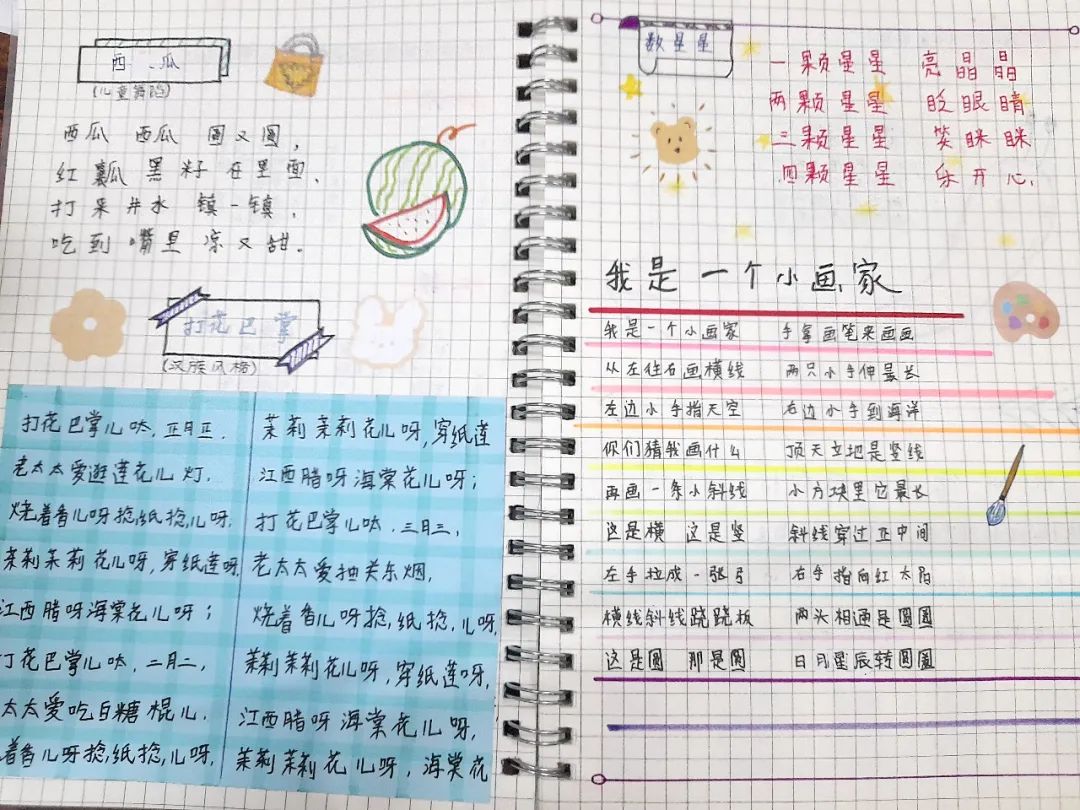 西瓜
(儿童舞蹈)
西瓜 西瓜 圆又圆,
红瓤瓜 黑籽 在里面.
打来井水 镇一镇,
吃到嘴里 凉又甜.
打花巴掌
(汉族风格)
打花巴掌儿呔,正月正.
老太太爱逛莲花儿灯.
烧着香儿呀捻,纸捻儿呀.
茉莉茉莉花儿呀,穿纸莲呀
江西腊呀海棠花儿呀;
打花巴掌儿呔,二月二,
太太爱吃白糖棍儿.
着香儿呀捻,纸捻,儿呀,
茉莉茉莉花儿呀,穿纸莲
江西腊呀海棠花儿呀;
打花巴掌儿呔,三月三,
老太太爱抽关东烟,
烧着香儿呀捻,纸捻,儿呀,
茉莉茉莉花儿呀,穿纸莲呀,
江西腊呀海棠花儿呀,
茉莉茉莉花儿呀,海棠花
数星星
一颗星星 亮晶晶
两颗星星 眨眼睛
三颗星星 笑眯眯
四颗星星 乐开心.
我是一个小画家
我是一个小画家 手拿画笔来画画
从左往右画横线 两只小手伸最长
左边小手指天空 右边小手到海洋
你们猜我画什么 顶天立地是竖线
再画一条小斜线 小方块里它最长
这是横 这是竖 斜线穿过正中间
左手拉成一张弓 右手指向红太阳
横线斜线跷跷板 两头相通是圆圆
这是圆 那是圆 日月星辰转圆圈